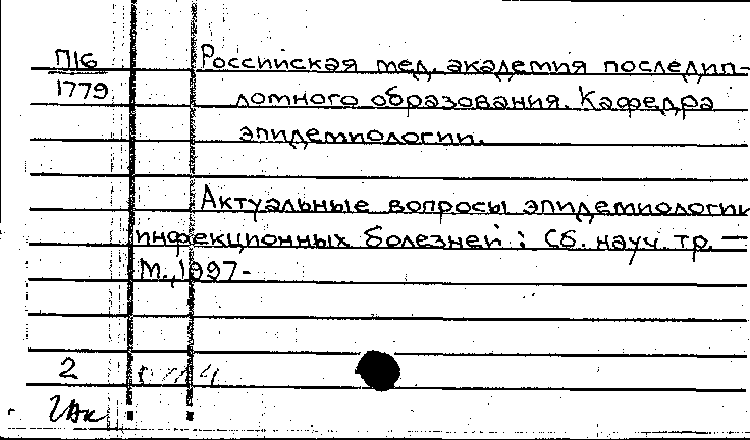 П16 Российская мед. академия последип-
1779 ломного образования. Кафедра
эпидемиологии.
Актуальные вопросы эпидемиологии
инфекционных болезней : Сб. науч. тр. —
М., 1997-
2